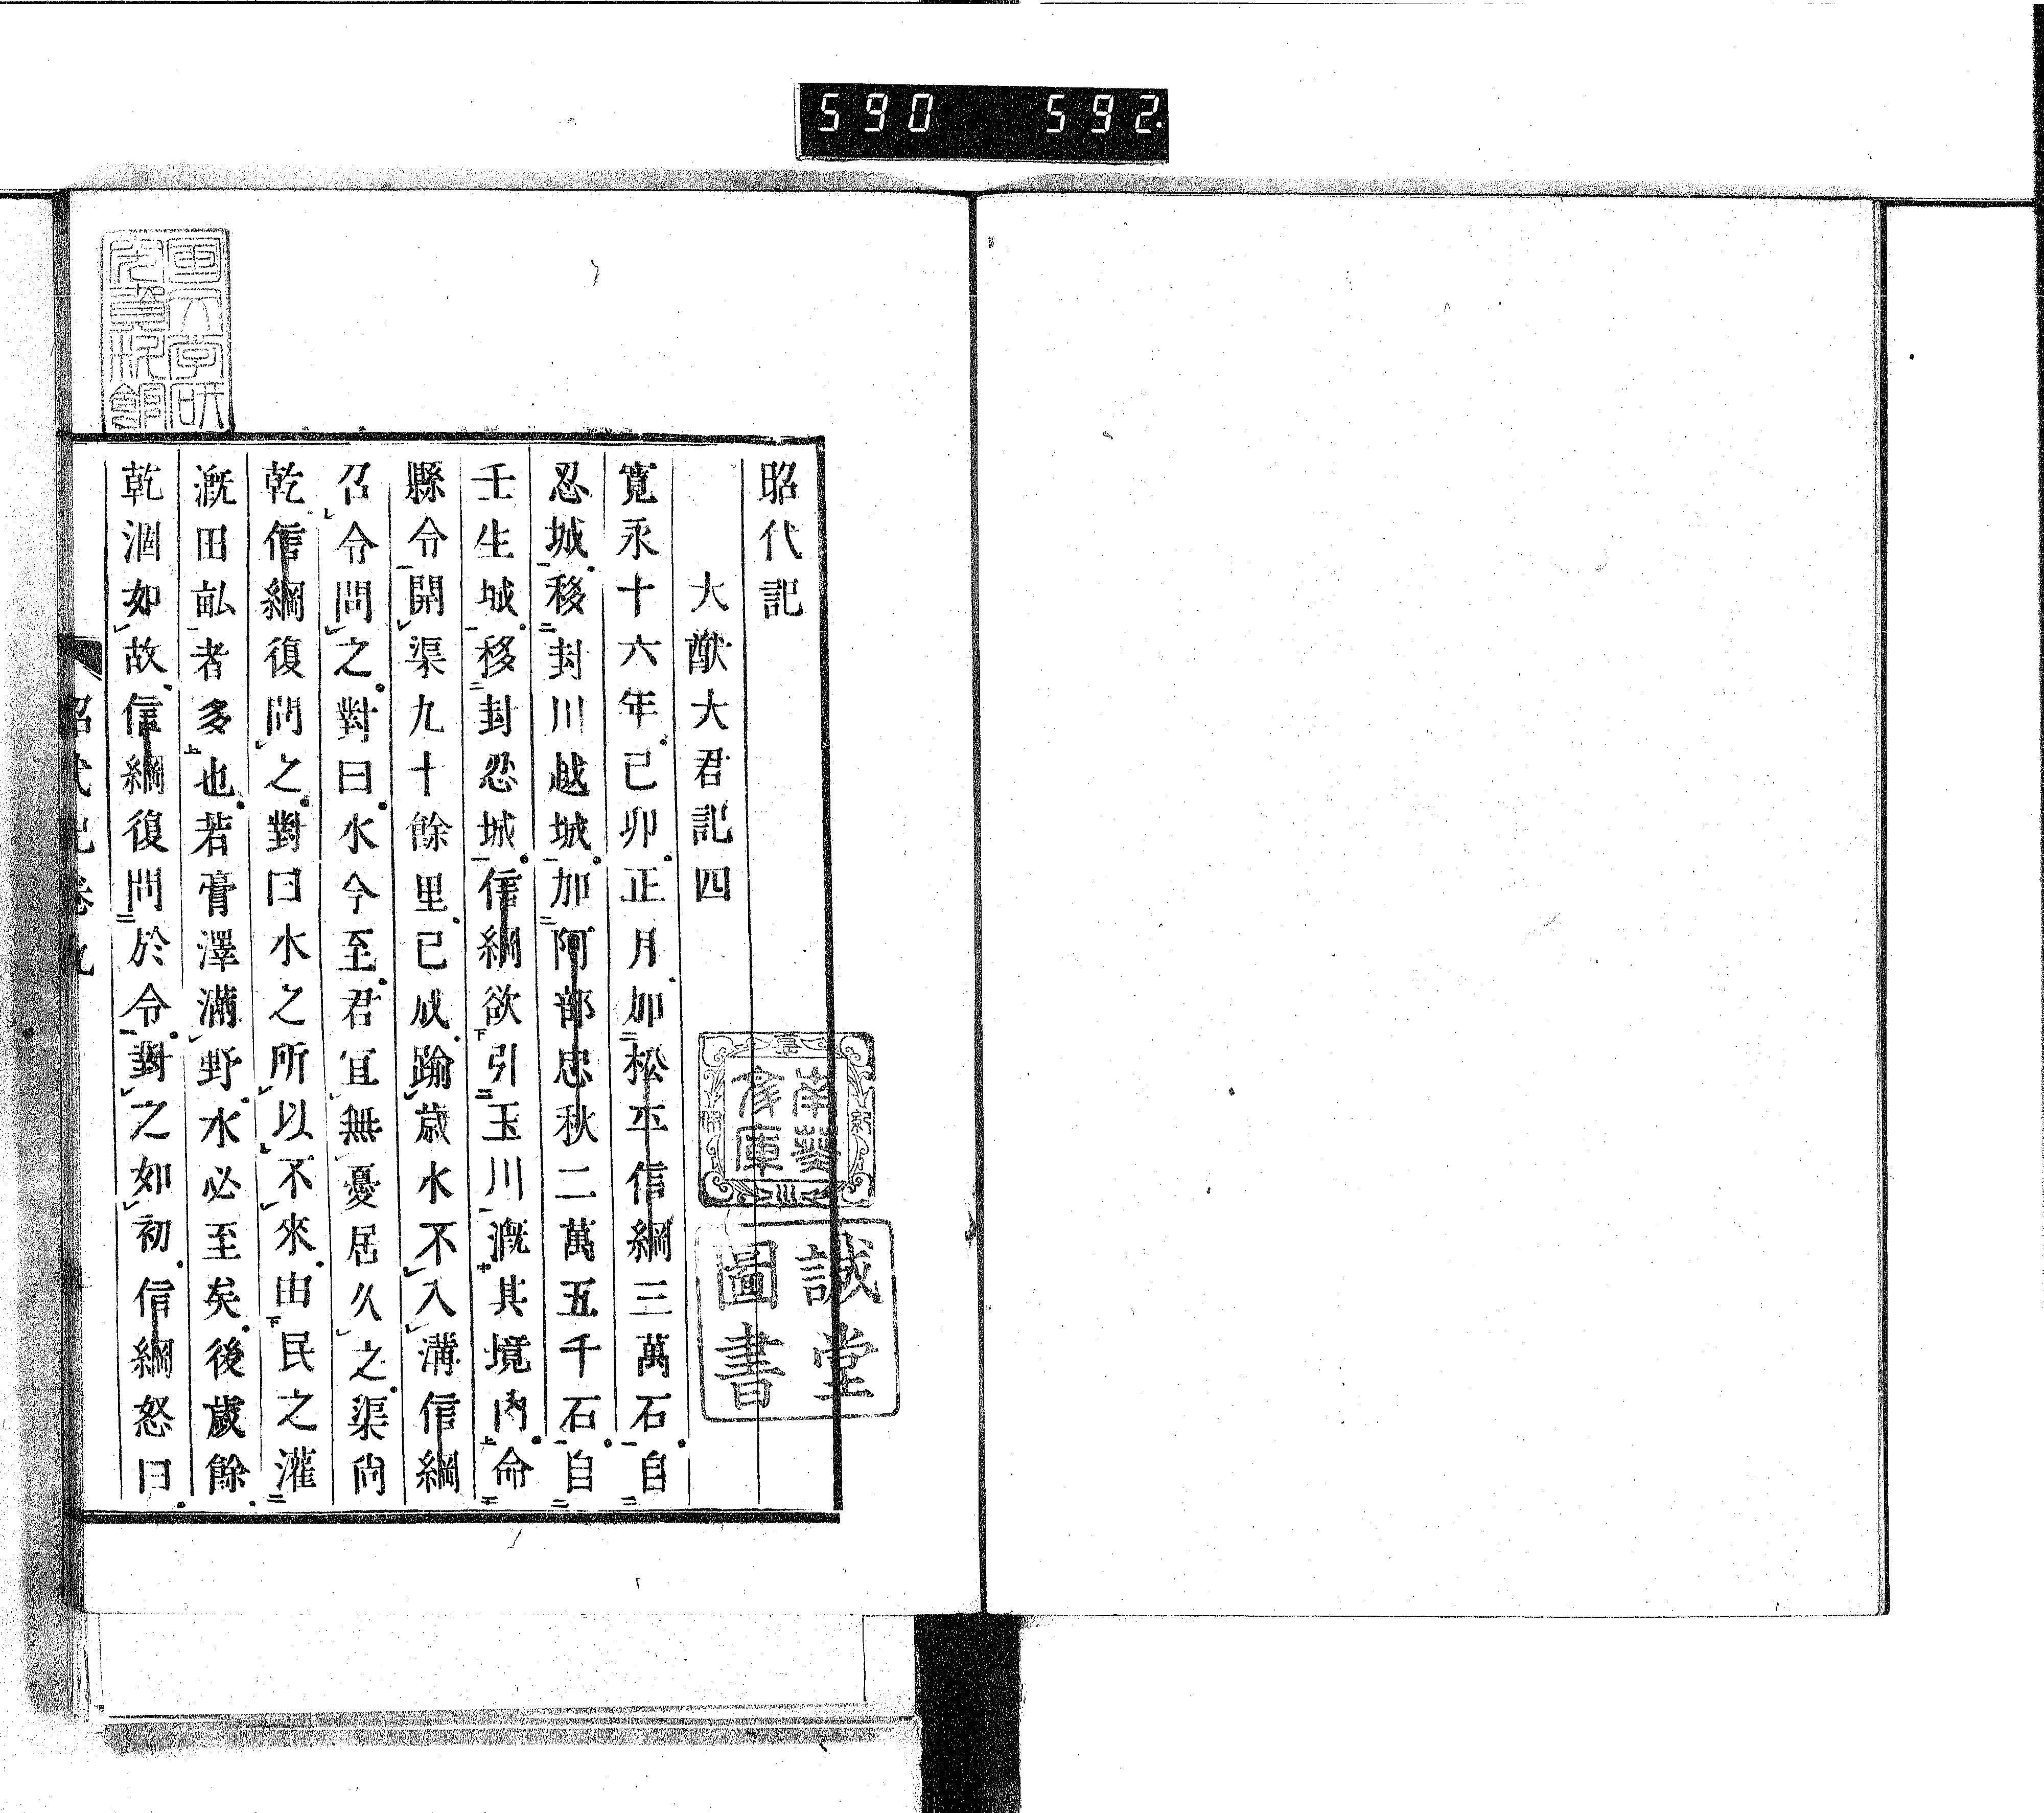 590 592
昭代記
大猷大君記四
寛永十六年己卯正月加松平信綱三萬石自
忍城移封川越城加阿部忠秋二萬五千石自
壬生城移封忍城信綱欲引玉川漑其境內命
縣令開渠九十餘里已成踰歲水不入溝信綱
召令問之對曰水今至君宜無憂居久之渠尙
乾信綱復問之對曰水之所以不來由民之灌
漑田畝者多也若膏澤滿野水必至矣後歲餘
乾涸如故信綱復問於令對之如初信綱怒曰
昭代記卷九
誠堂
圖書